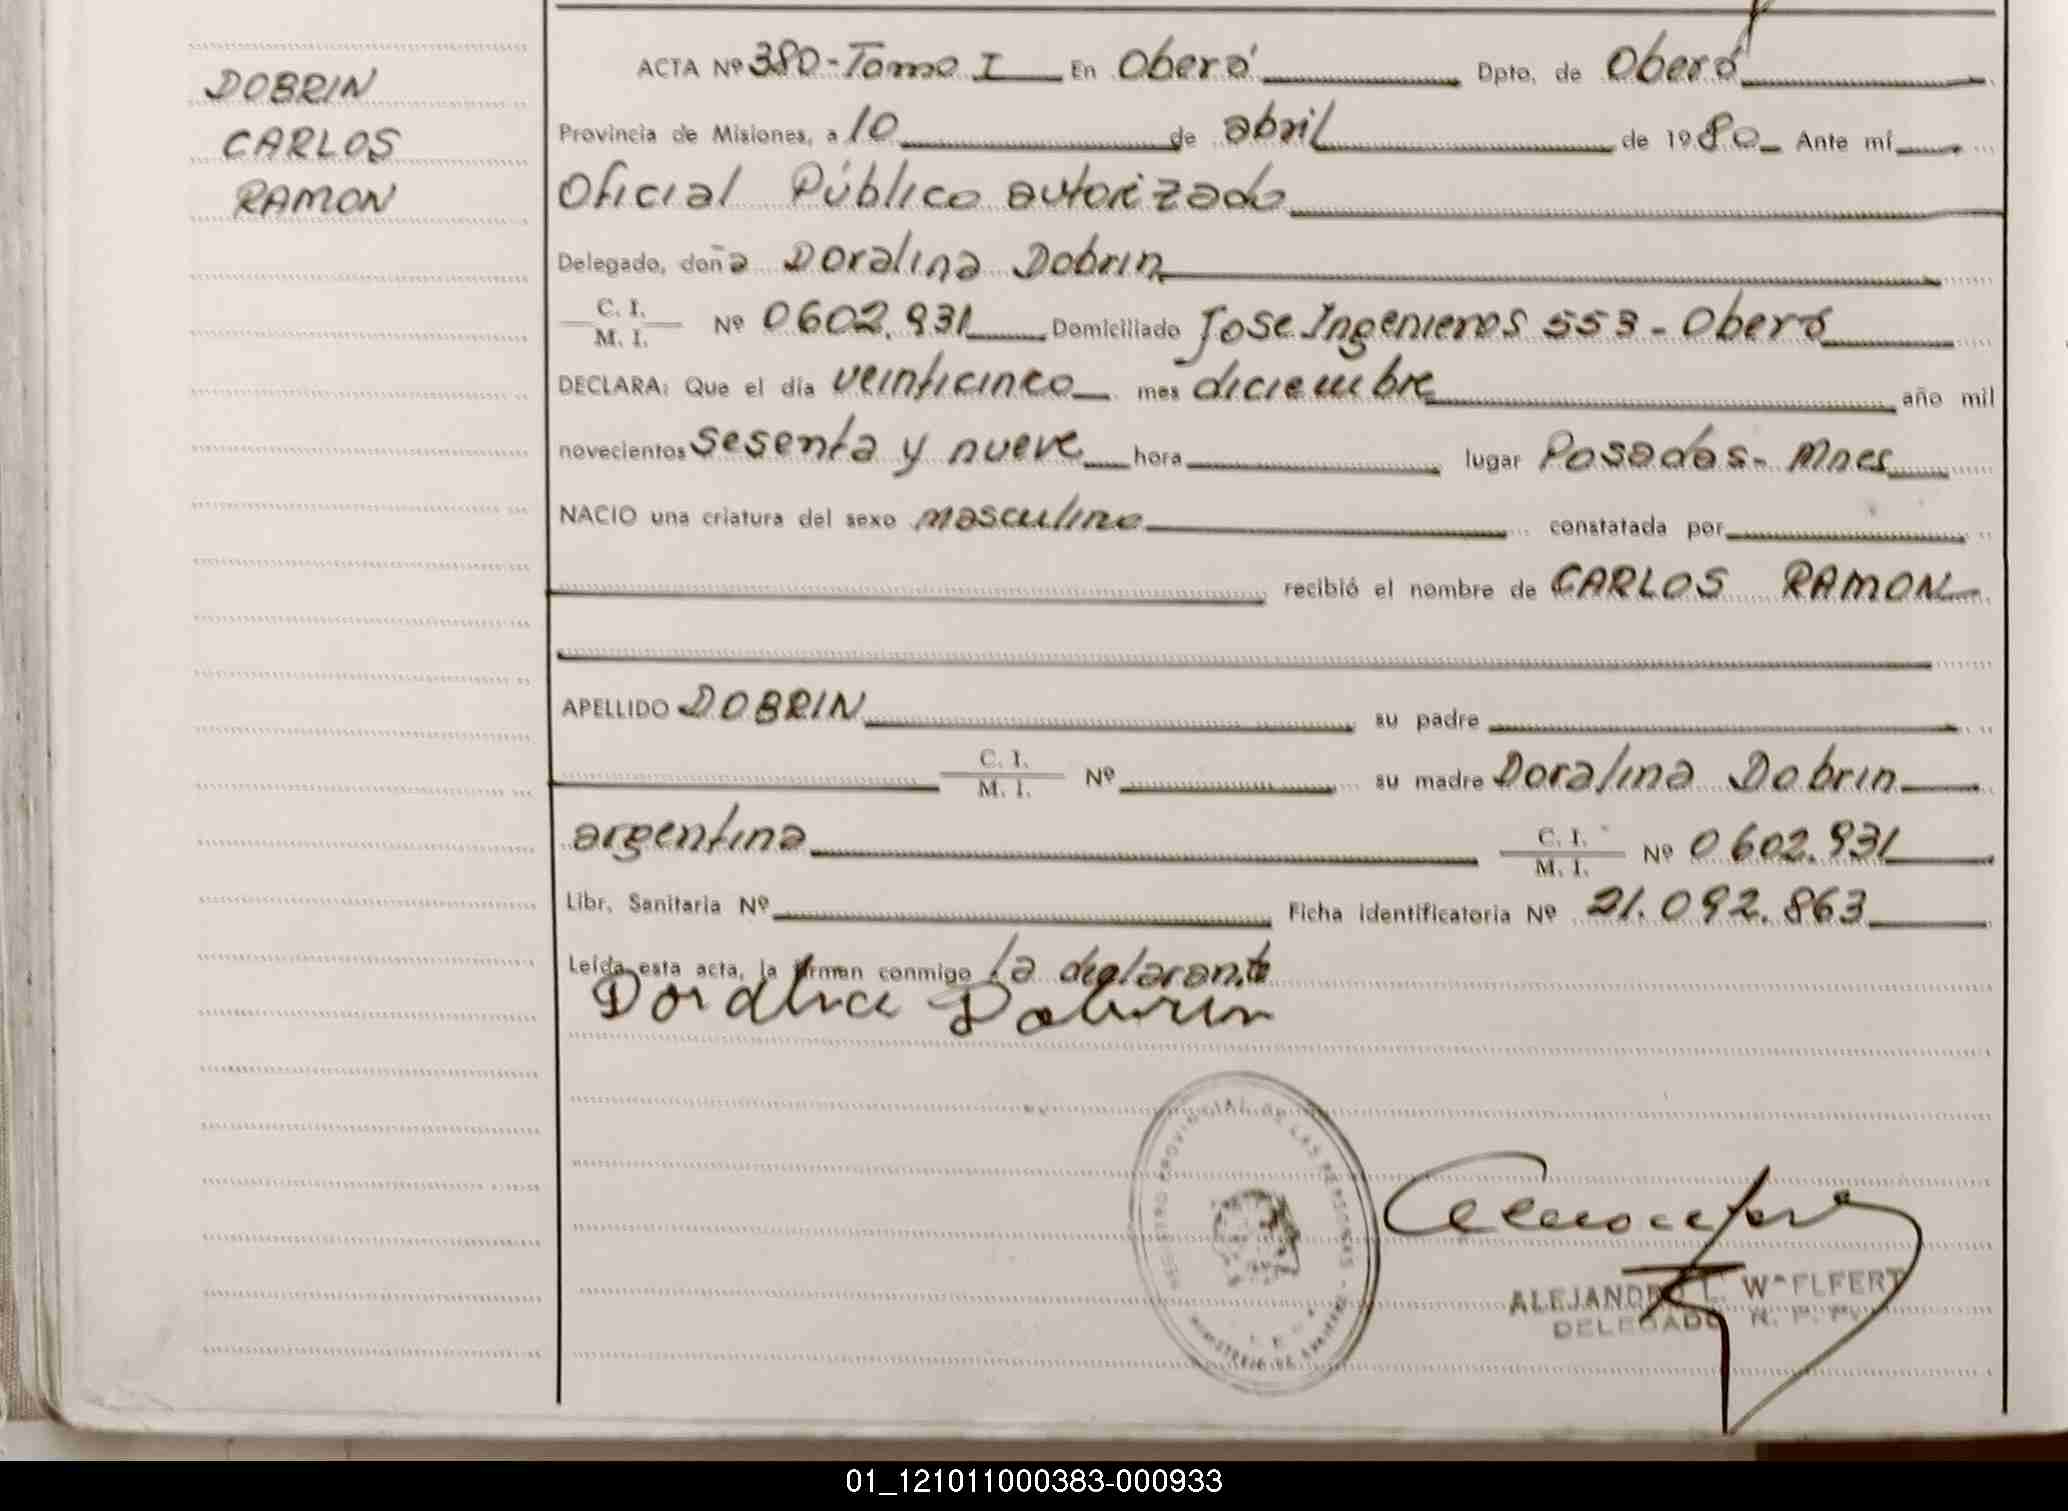 DOBRIN
CARLOS
RAMON
ACTA Nº 380-Tomo I En Oberá Dpto. de Oberá
Provincia de Misiones, a 10 de abril de 1980 Ante mí
Oficial Público autorizado
Delegado, doña Doralina Dobrin
C. I.
M. I.
Nº 0602.931 Domiciliado Jose Ingenieros 553 - Oberá
DECLARA: Que el día veinticinco mes diciembre año mil
novecientos sesenta y nueve hora lugar Posadas - Mnes
NACIO una criatura del sexo masculino constatada por
recibió el nombre de CARLOS RAMON
APELLIDO DOBRIN su padre
C. I.
M. I.
Nº su madre Doralina Dobrin
argentina
C. I.
M. I.
Nº 0602.931
Libr. Sanitaria Nº Ficha identificatoria Nº 21.092.863
Leída esta acta, la firman conmigo la declarante
Doralina Dobrin
REGISTRO PROVINCIAL DE LAS PERSONAS
MINISTERIO DE
ALEJANDRO L.
DELEGADO R. P. P.
01_121011000383-000933